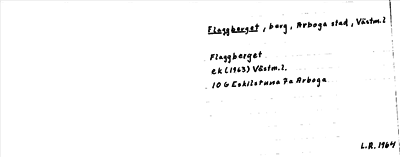 Flaggberget, berg, Arboga stad, Västm.l
Flaggberget
ek (1963) Västm.l.
10 G Eskilstuna 7a Arboga
L.R. 1964